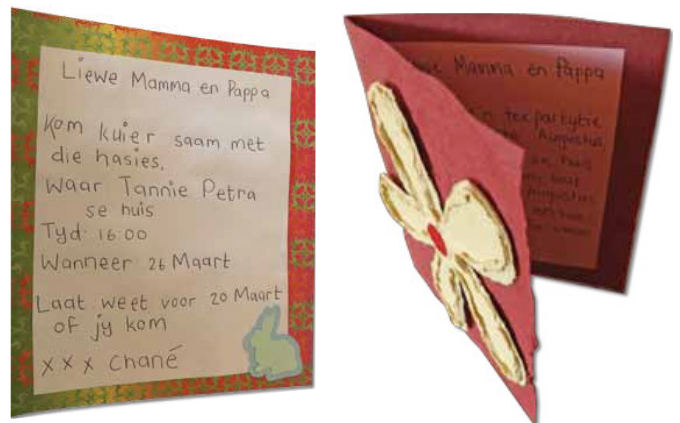 Liewe Mamma en Pappa
Kom kuier saam met
die hasies.
Waar Tannie Petra
se huis
Tyd: 16:00
Wanneer 26 Maart
Laat weet voor 20 Maart
of jy kom
x x x Chané
Mamma en Pappa
teepartytjie
Augustus
huis
Augustus